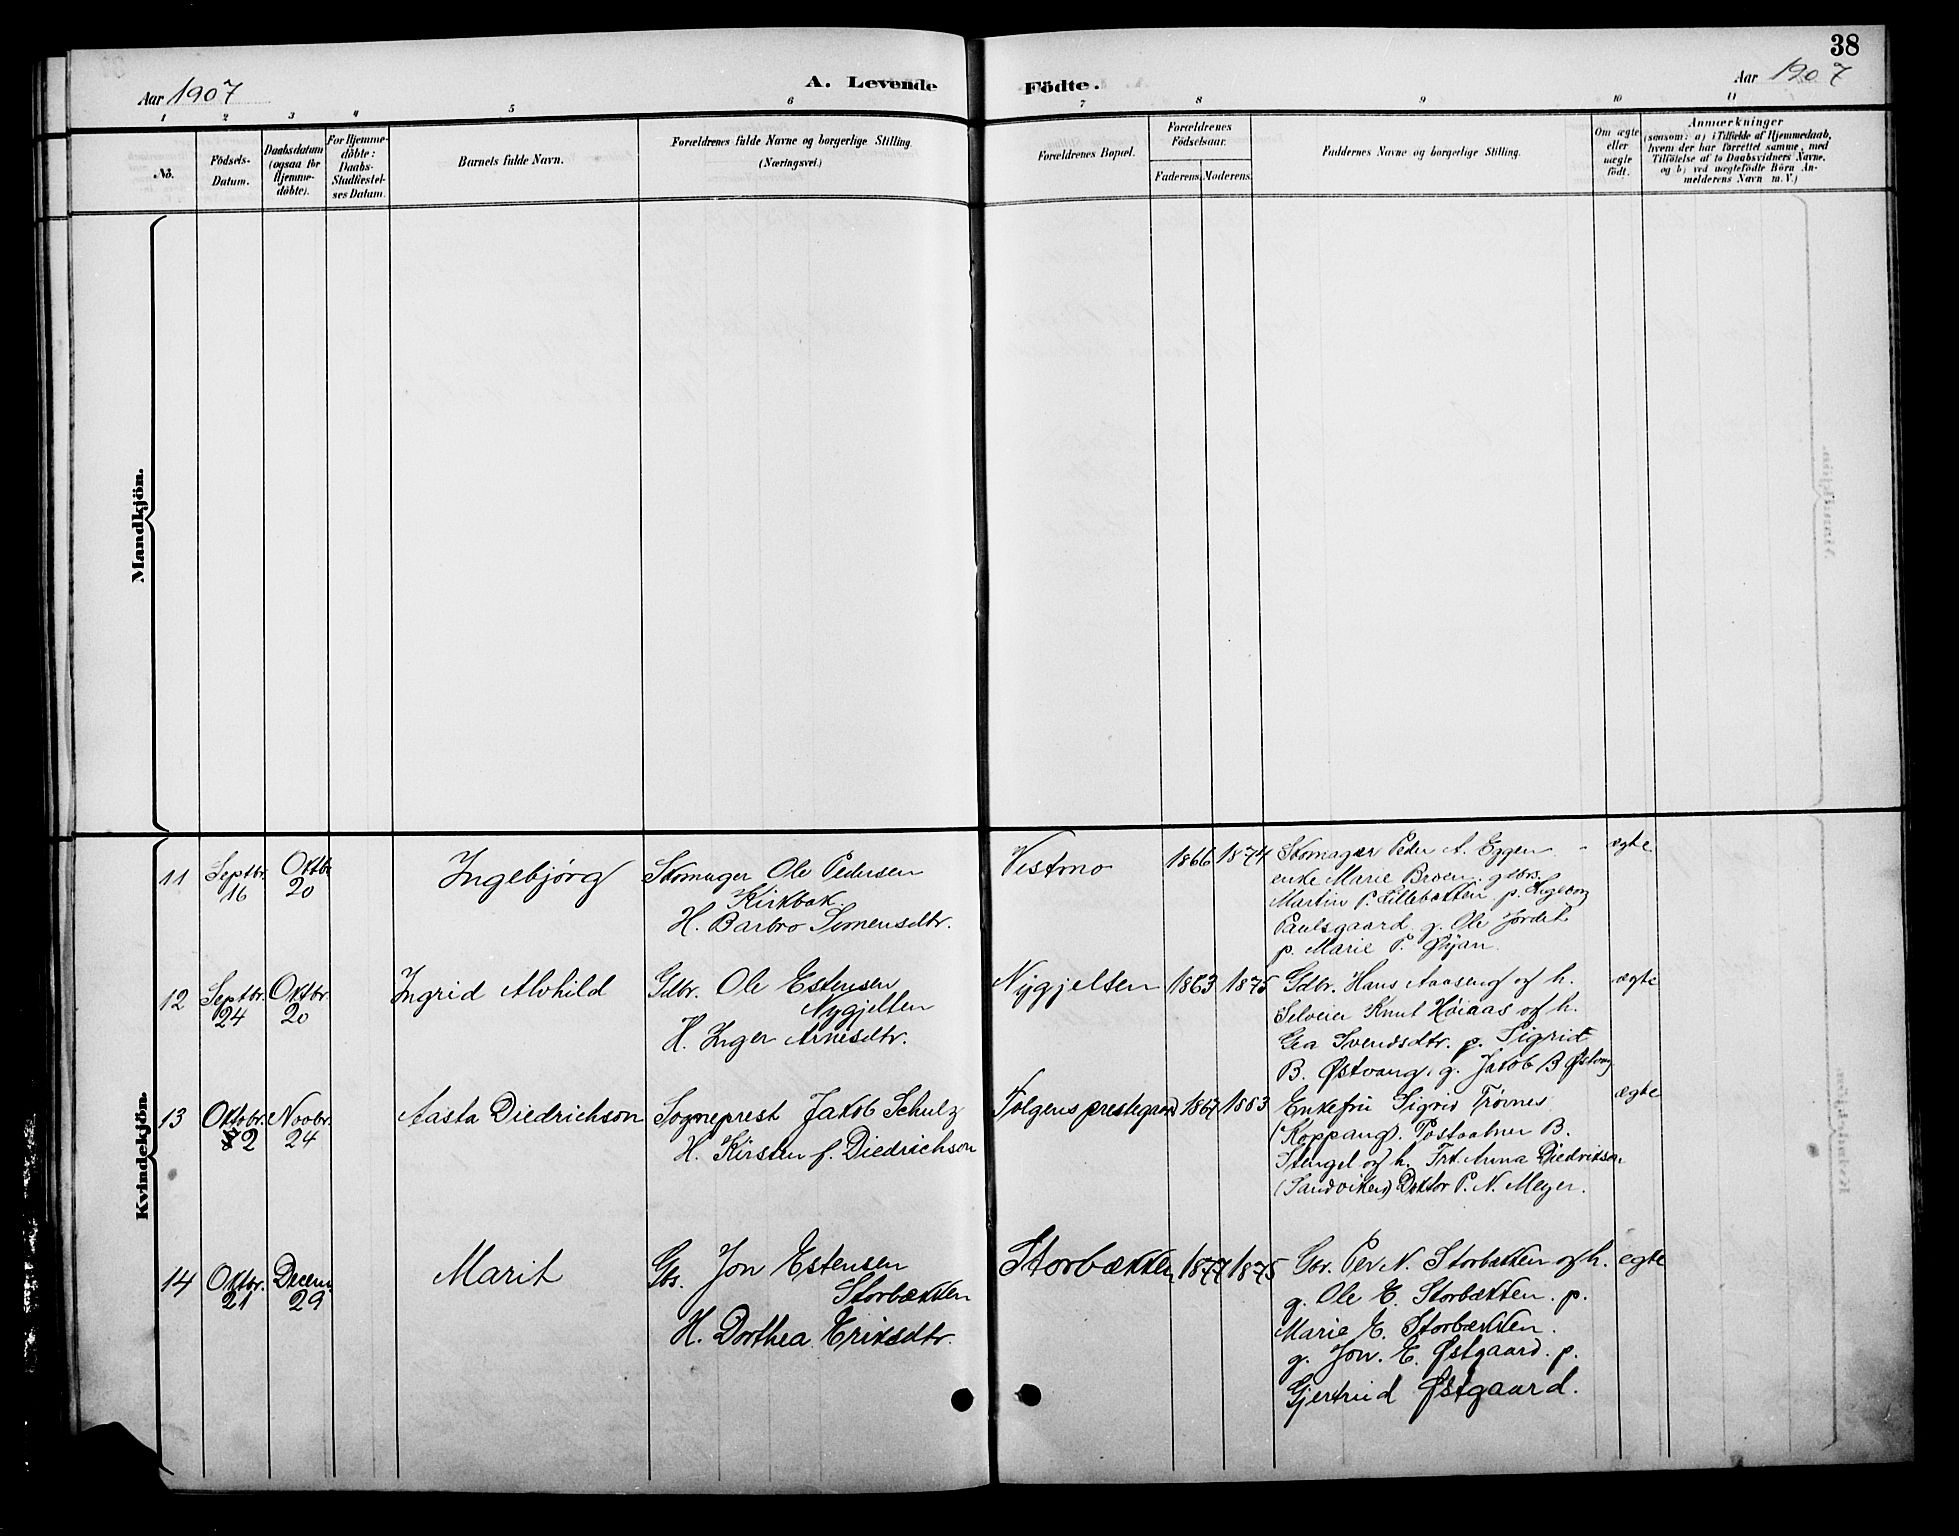 38
Aar 1907
A. Levende
Födte.
Aar 1907
1 2 3 4 5 6 7 8 9 10 11
No.
Födsels-
Datum.
Daabsdatum
(ogsaa for
Hjemme-
döbte).
For Hjemme-
döbte:
Daabs-
Stadfæstel-
ses Datum.
Barnets fulde Navn.
Forældrenes fulde Navne og borgerlige Stilling
(Næringsvei.)
Forældrenes Bopæl.
Forældrenes
Födselsaar.
Faderens. Moderens.
Faddernes Navne og borgerlige Stilling.
Om ægte
eller
uægte
födt.
Anmærkninger
(saasom: a) i Tilfælde af Hjemmedaab,
hvem der har forrettet samme, med
Tilföielse af to Daabsvidners Navne,
og b) ved uægtefödte Börn An-
melderens Navn m. V.)
Mandkjön.
Kvindekjön.
11
Septbr.
16
Oktbr
20
Ingebjørg
Skomager Ole Pedersen
Kirkbak
H. Barbro Simensdtr.
Vestmo
1866
1874
Skomager Peder A. Eggen
enke Marie Broen. gdbrs.
Martin P. Lillebækken p. Ingeborg
Paulsgaard g. Ole Jordet
p. Marie P. Øyan.
ægte
12
Septbr.
24
Oktbr.
20
Ingrid Alvhild
Gdbr. Ole Estensen
Nygjelten
H. Inger Arnesdtr.
Nygjelten
1863
1875
Gdbr. Hans Aasen og h.
Selveier Knut Høiaas og h.
Gea Svendsdtr. p. Sigrid
B. Østvang, g. Jakob B Østvang
ægte
13
Oktobr.
2
Novbr.
24
Aasta Diedrichson
Sogneprest Jakob Schulz
H. Kirsten f. Diedrichson
Tolgens prestegaard
1867
1883
Enkefru Sigrid Trønnes
(Koppang). Postaabner B.
Stengel og h. Frk. Anna Diedrichson
(Sandviken) Doktor P. N. Meyer.
ægte
14
Oktbr.
21
Decem.
29
Marit
Gbr. Jon Estensen
Storbækken
H. Dorthea Eriksdtr.
Storbækken
1877
1875
Gbr. Per N. Storbækken og h.
g. Ole E. Storbækken. p.
Marie E. Storbækken.
g. Jon. E. Østgaard. p.
Gjertrud Østgaard.
ægte